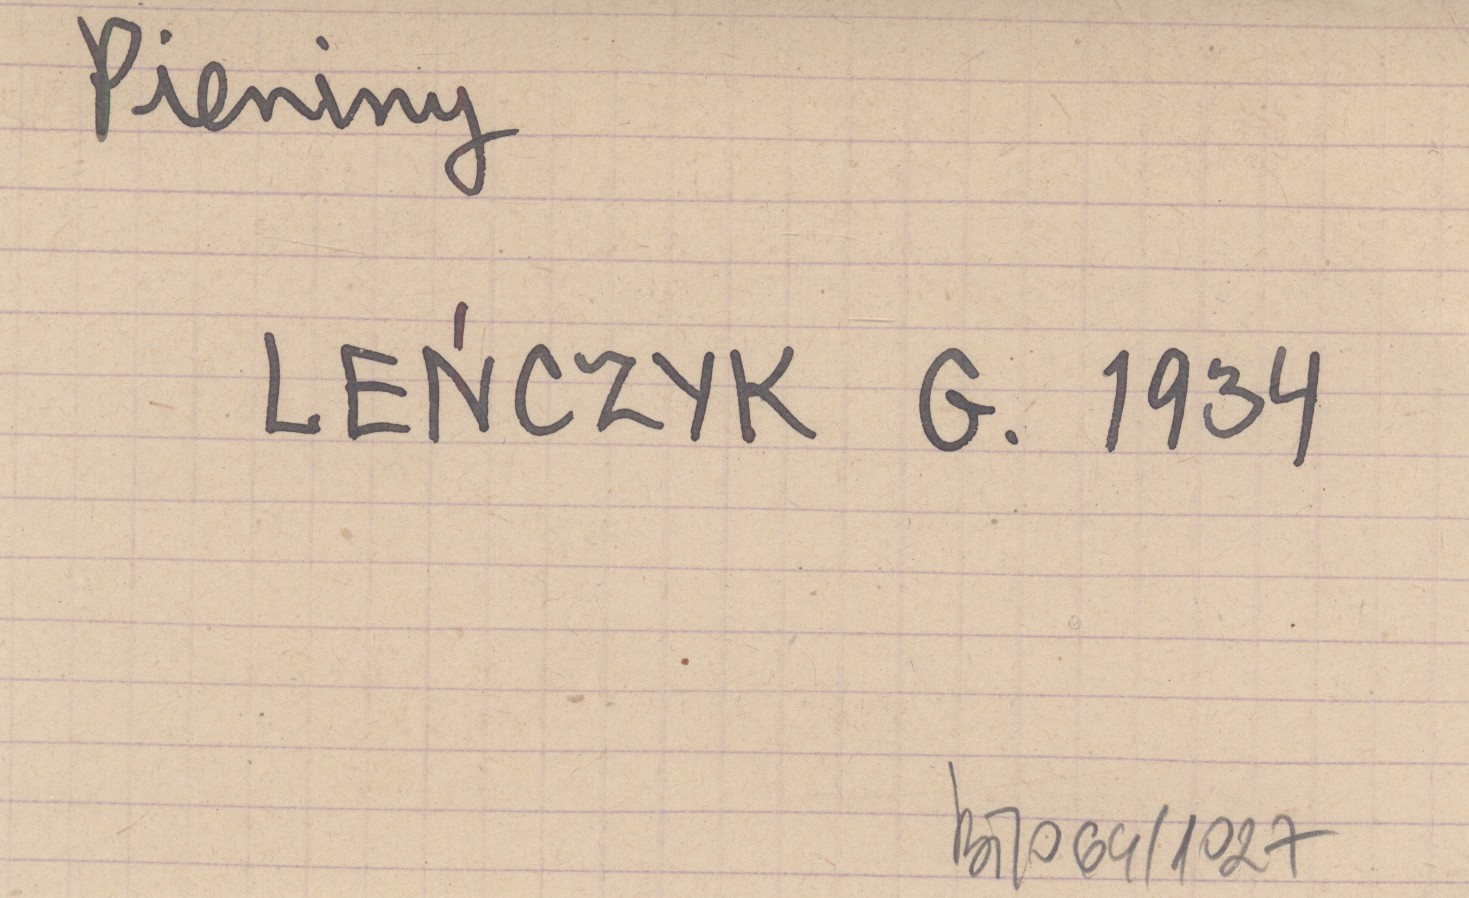 Pieniny
LEŃCZYK G. 1934
64/1027